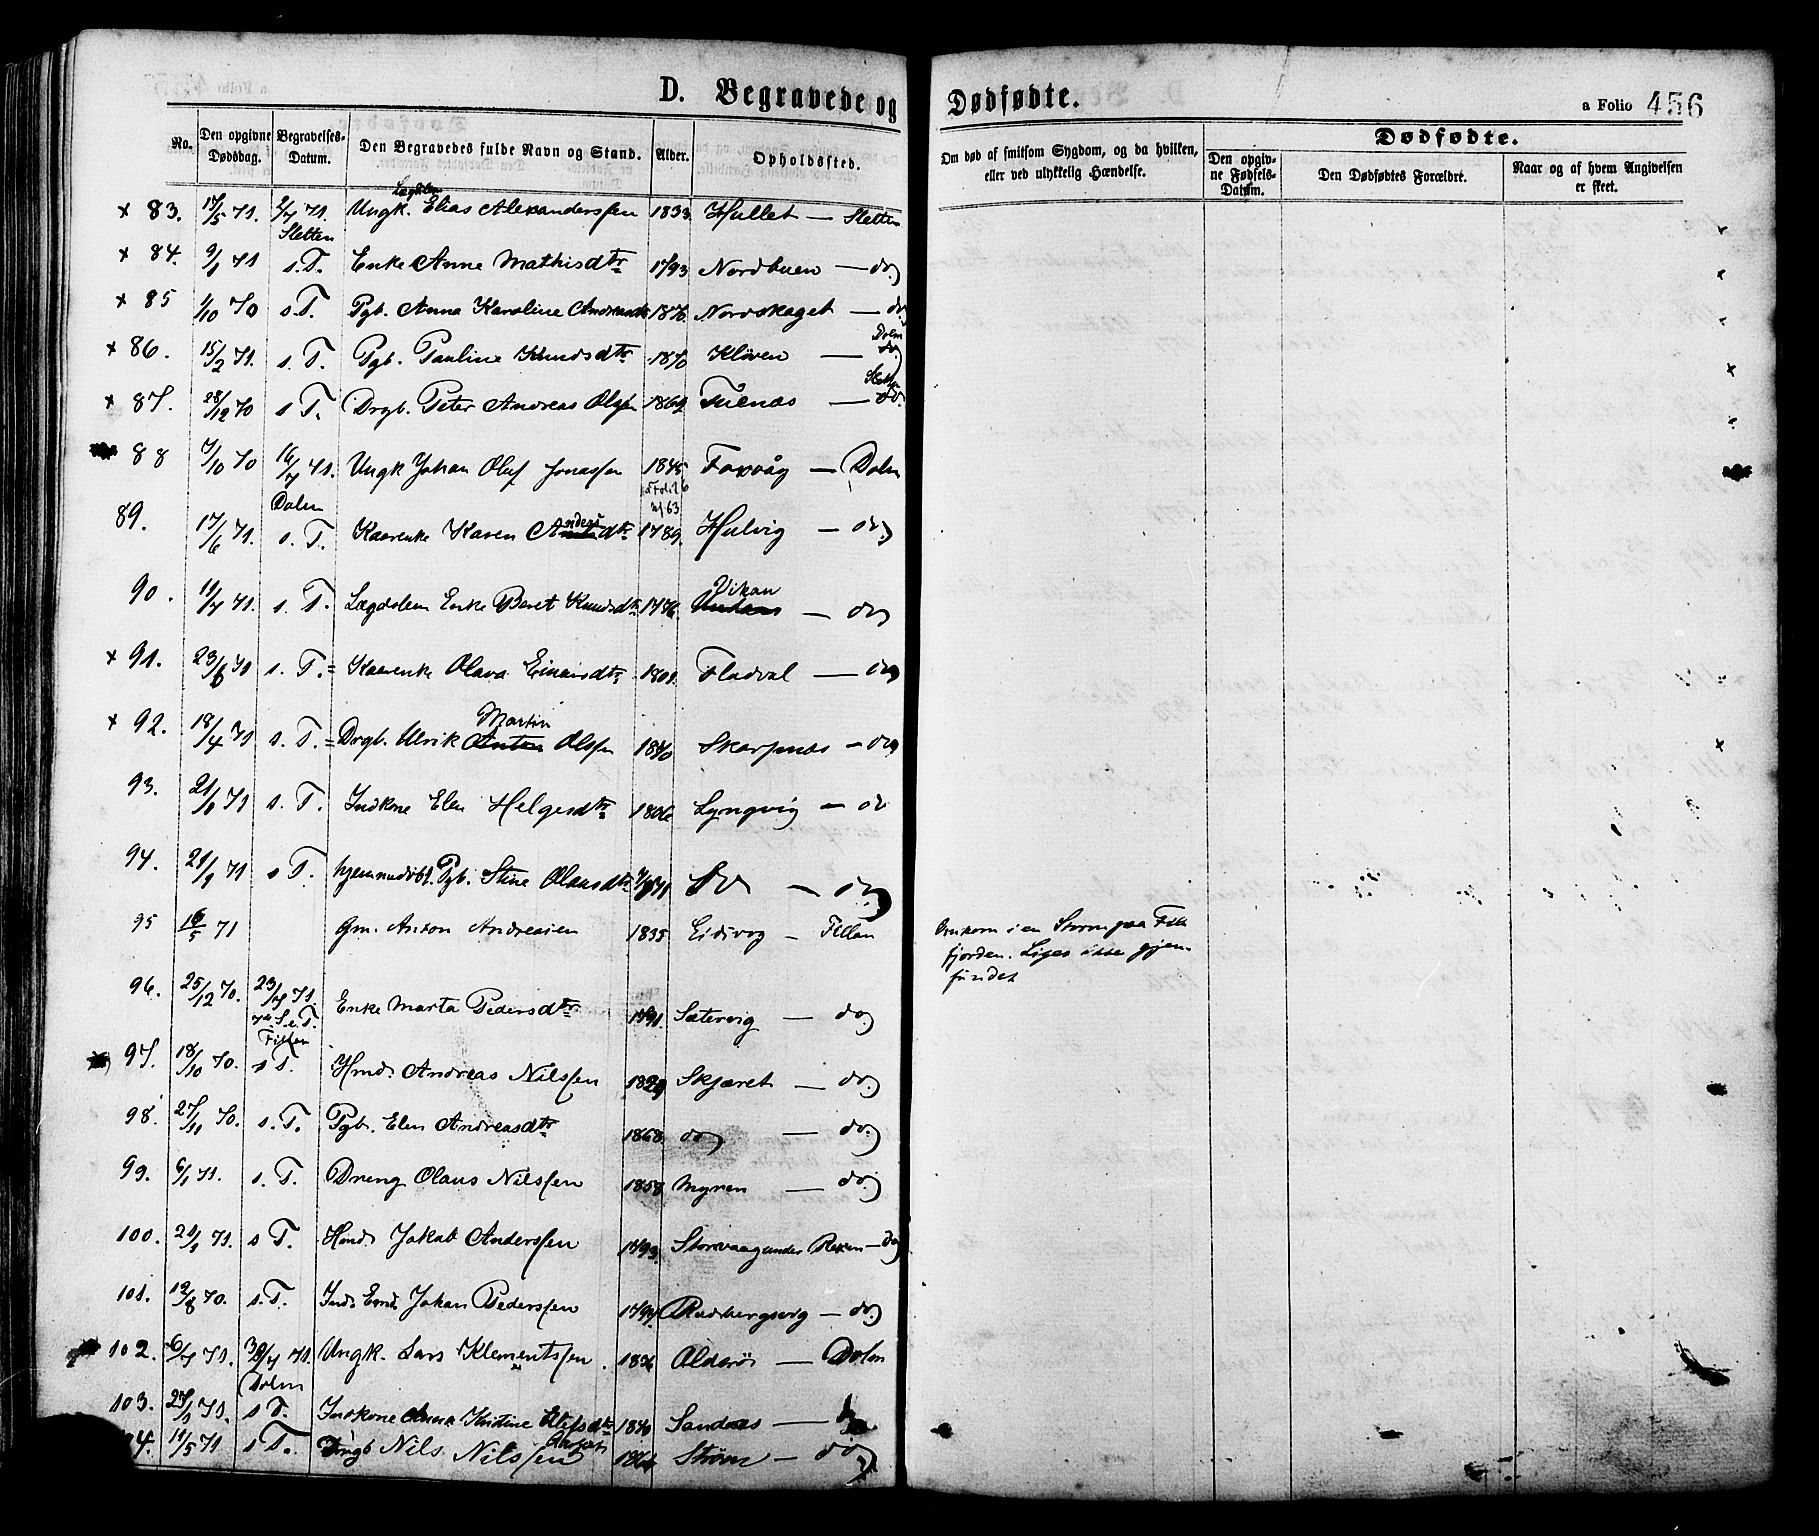 D. Begravede og Dødfødte.
a Folio 456
No.
Den opgivne Dødsdag.
Begravelses-Datum.
Den Begravedes fulde Navn og Stand.
Alder.
Opholdssted.
Om død af smitsom Sygdom, og da hvilken, eller ved ulykkelig Hændelse.
Dødfødte.
Den opgivne Fødsels-Datum.
Den Dødfødtes Forældre.
Naar og af hvem Angivelsen er skeet.
Lægdslem
× 83. 17/5 71. 2/7 71. Ungk. Elias Alexanderssen 1833 Hullet — Sletten
Sletten
× 84. 9/1 71 s. T. Enke Anne Mathisdtr 1793 Nordbuen — do
× 85 1/10 70 s. T. Pgb. Anna Karoline 1870. Nordskaget — do
Dolm
× 86. 15/2 71. s. T. Pgb. Pauline Knudsdtr 1870 Kløven — do
Sletten
× 87. 28/12 70 s T. Drgb. Peter Andreas Olsen Tuenæs — do
88 7/10 70 16/7 71. Ungk Johan Oluf Jonassen 1845 Foxvåg — Dolm
Dolm
89. 17/6 71. s. T. Kaarenke Karen Andersdtr 1789. Hulvig — do
Vikan
90. 11/7 71. s. T. Lægdslem Enke Beret Knudsdtr 1786. — do
× 91. 23/6 71 s. T. = Kaarenke Olava Einarsdtr 1801. Fladval — do
Martin
× 92. 18/4 71 s. T. = Drgb. Ulrik Anton Olssen 1870 Skarpnæs — do
93. 21/6 71 s. T. Indkone Elen Helgesdtr 1806 Lyngvig — do
94. 21/9 71 s T. hjemmedøbt. Pgb. Stine Olausdtr — do
95 16/5 71 Gm. Anton Andreasen 1835 Eidsvog — Fillan
Omkom i en Storm paa
fjorden. Liget ikke gjen-
fundet
96. 25/12 70. 23/7 71. Enke Marta Pedersdtr 1791. Sætervig — do
7de S. e. T.
Fillan
97. 18/10 70. s T. Hmd. Andreas Nilssen 1829 Skjæret — do
98. 27/11 70. s. T. Pgb. Elen Andreasdtr 1868. do — do
99. 6/1 71. s. T. Dreng Olaus Nilssen 1858 Myren — do
100. 21/1 71. s T. Hmd. Jakob Anderssen 1793. Storvaag under Rexen — do
101. 12/8 70. s. T. Inds Emd. Johan Pederssen 1794. Rudbergsvig — do
102. 6/7 71. 30/7 71. Ungk. Lars Klementssen. 1836 Alderøi — Dolm
Dolm
103. 27/1 71. s T. Indkone Anna Kristine 1840 Sandnes —
104. 11/5 71 s T. Drngb Nils Nilssen 1864 Strøm — do